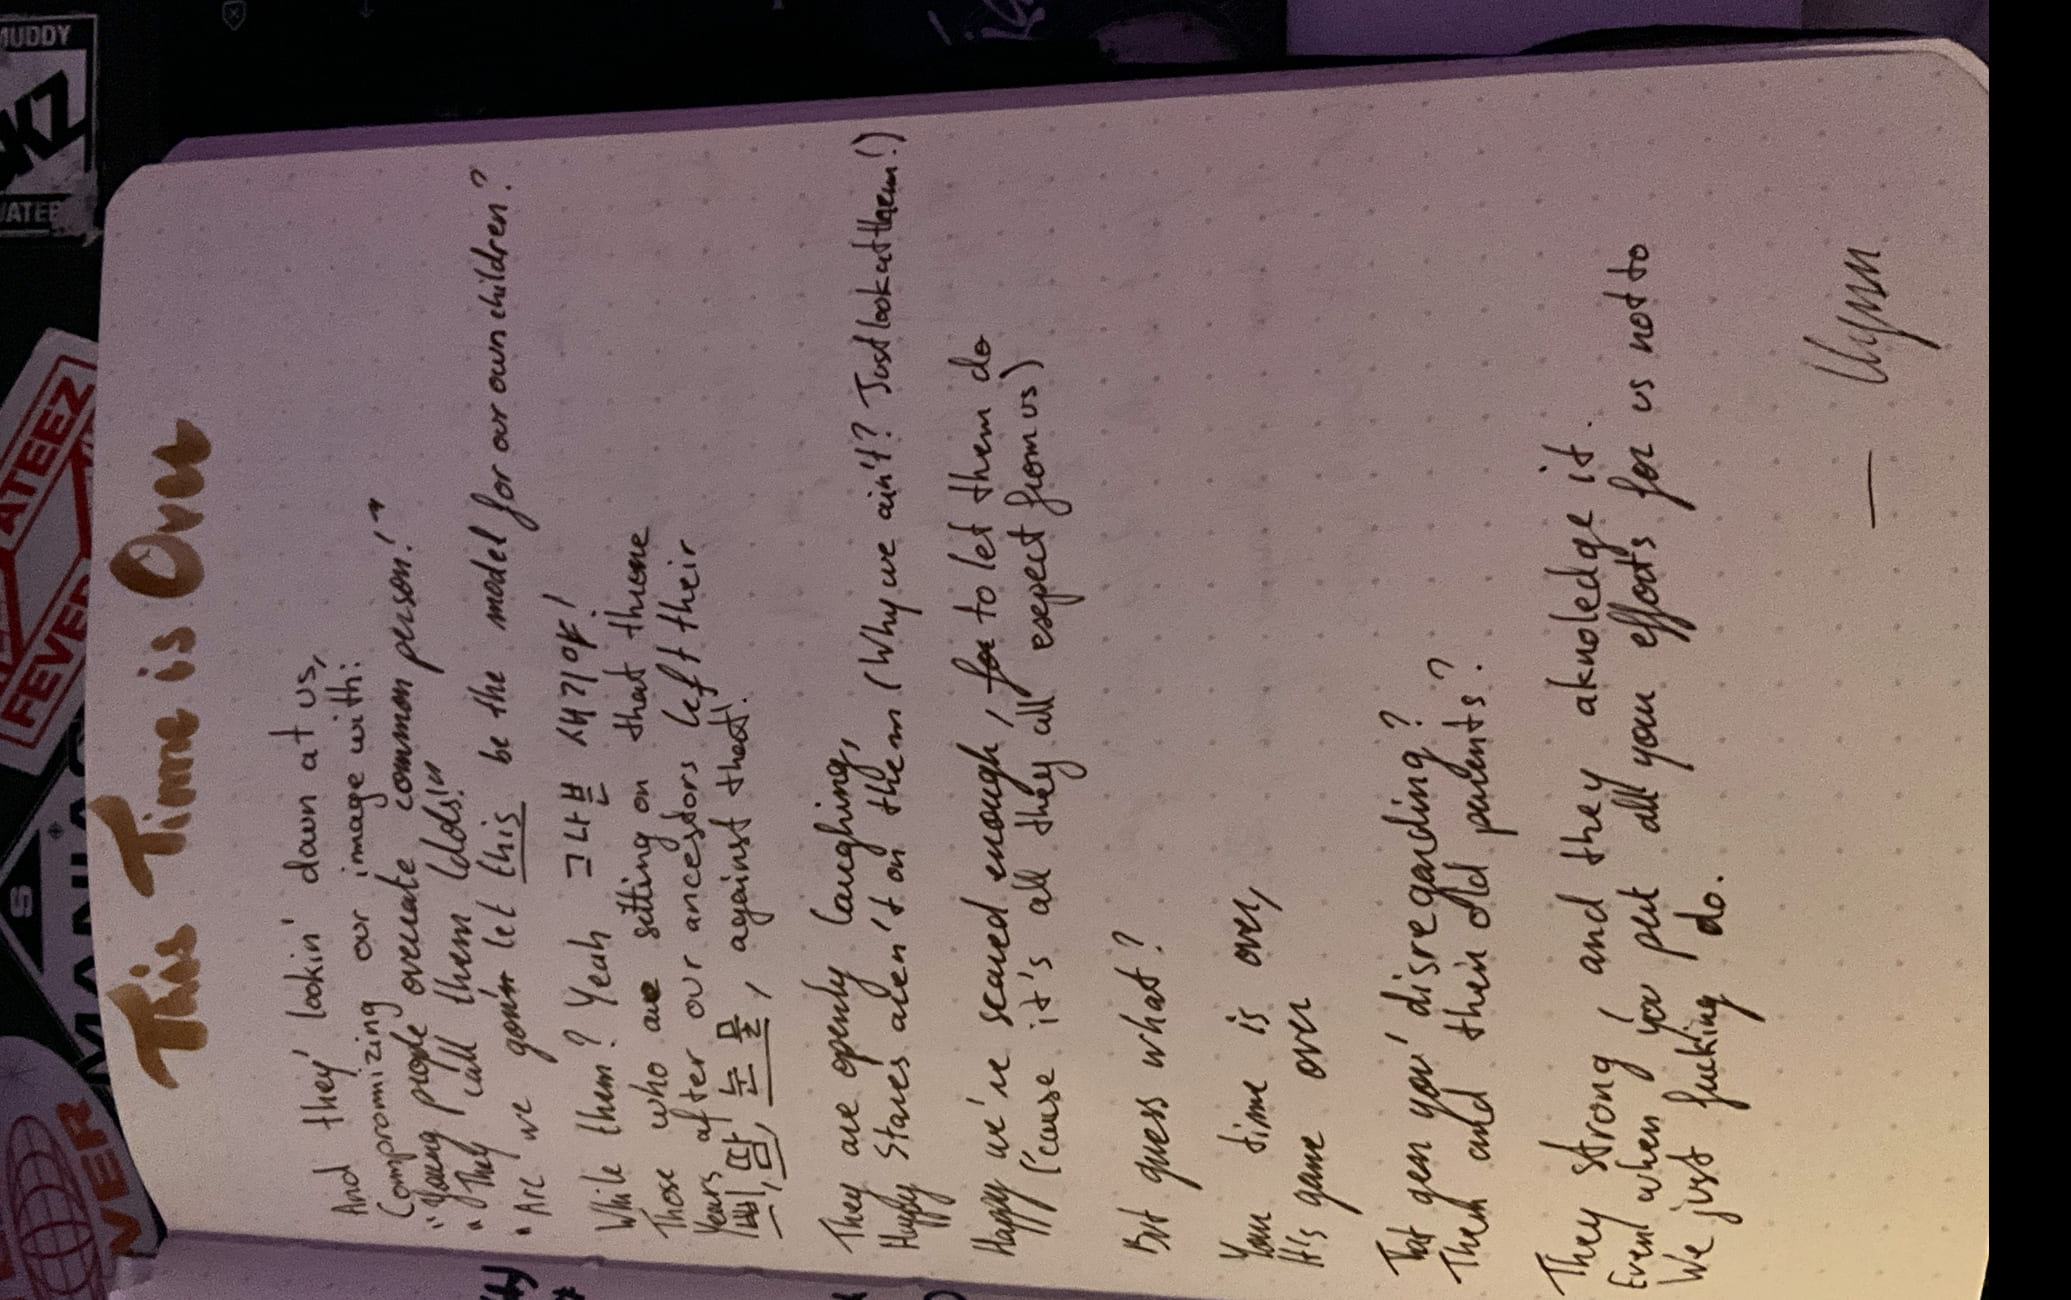 This Time is Over
And they' lookin' down at us,
Compromizing our image with:
"Young people overrate common person!"
"They call them Idols!"
"Are we gonn let this be the model for our own children?
While them? Yeah 그나쁜 새기야!
Those who are sitting on that throne
Years after our ancestors left their
삐, 땀, 눈물, against that!
They are openly laughing,
Happy Stares aren't on them (Why we ain't? Just look at them!)
Happy we're scared enough, for to let them do
('cause it's all they all expect from us)
But guess what?
Your time is over,
It's game over
That gen you' disregarding?
Them and their old parents?
They strong, and they aknoledge it.
Even when you put all your efforts for us not to
We just fucking do.
MUDDY
WATER
ATEEZ
FEVER
S